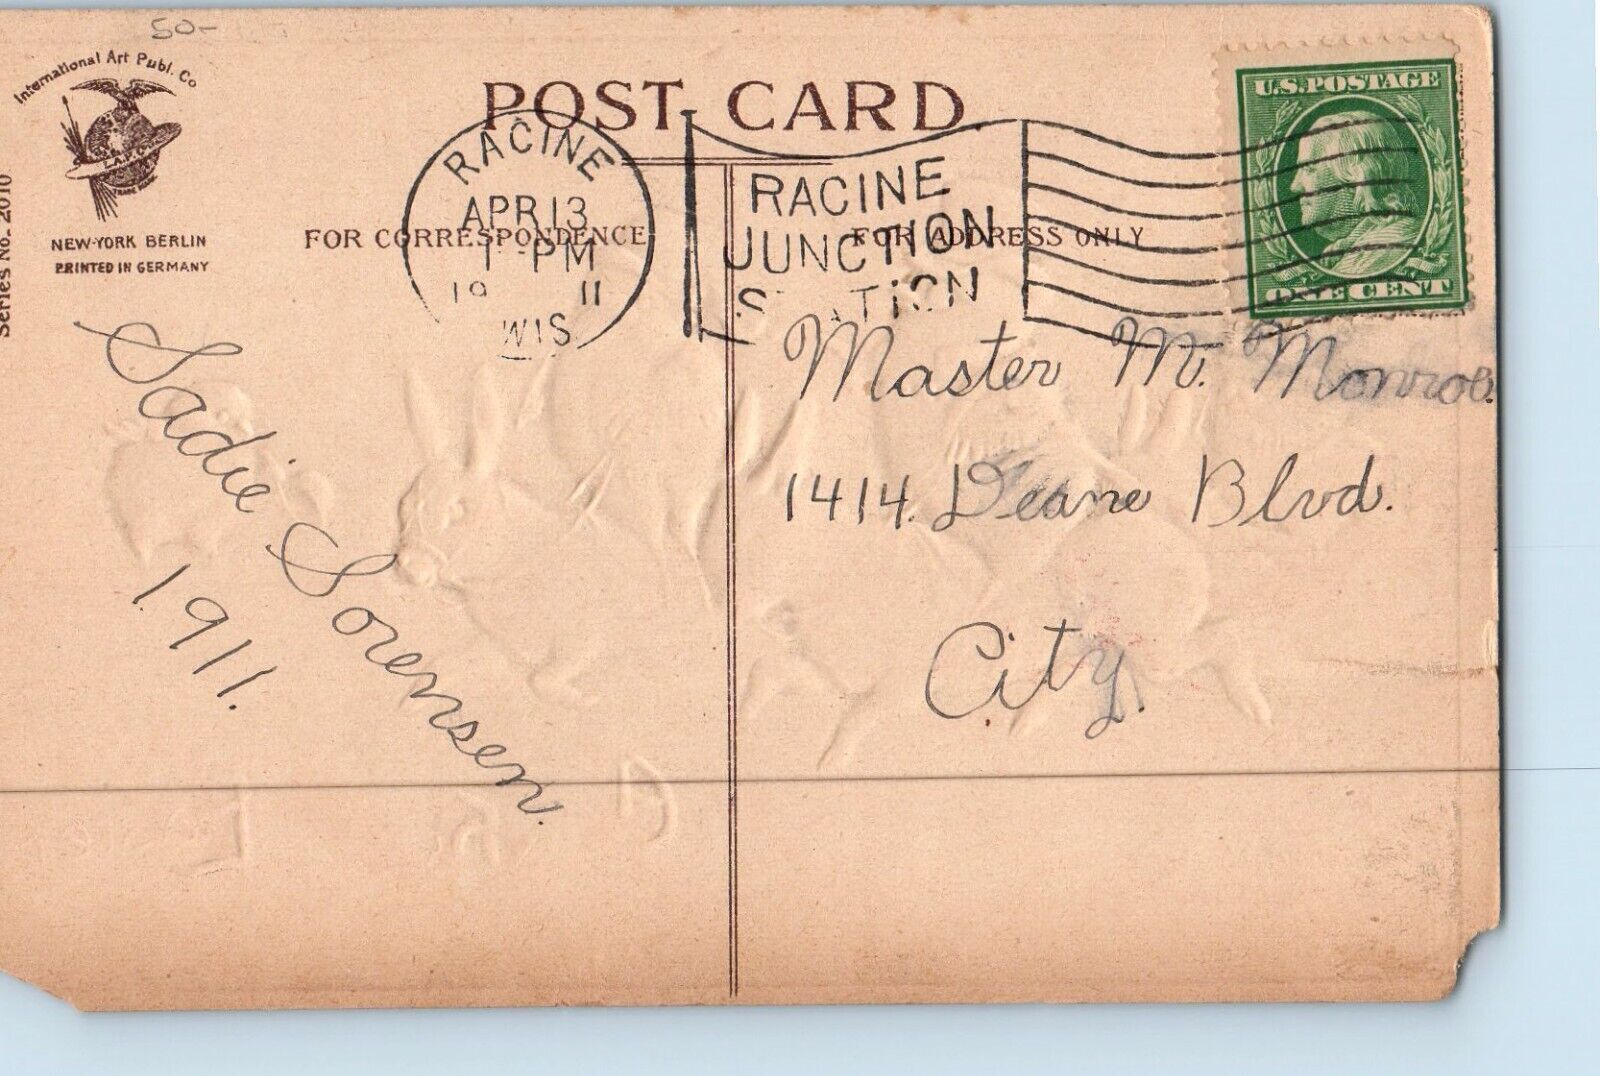 50-
International Art Publ. Co
NEW-YORK BERLIN
PRINTED IN GERMANY
Series No. 2010
POST CARD.
RACINE
APR 13
1-PM
19 11
WIS
RACINE
JUNCTION
STATION
U.S. POSTAGE
ONE CENT
FOR CORRESPONDENCE
FOR ADDRESS ONLY
Sadie Sorensen.
1911.
Master M. Monroe.
1414. Deane Blvd.
City.